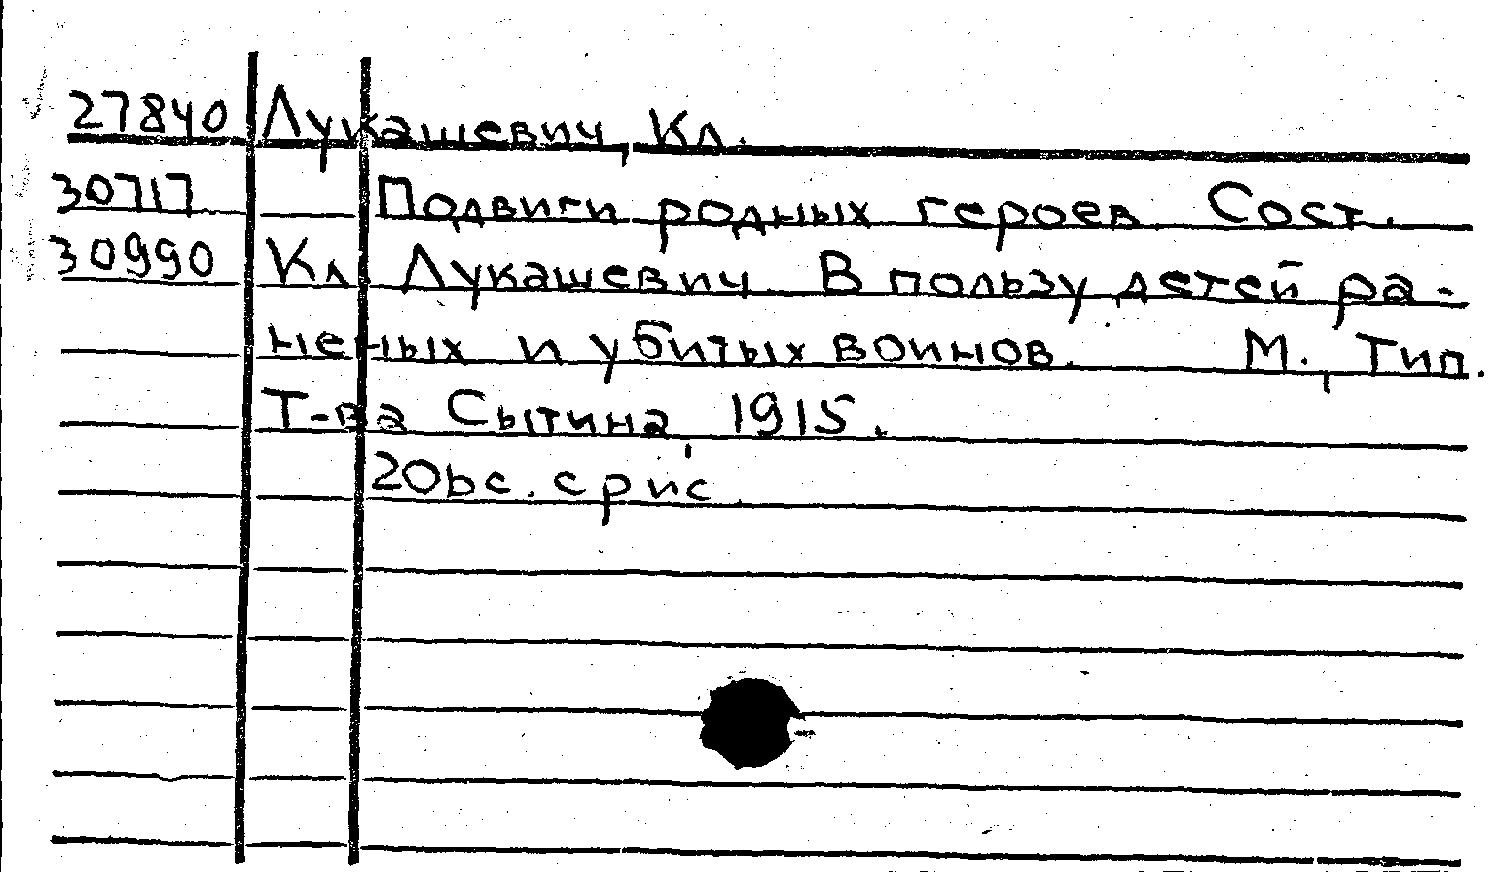 27840 Лукашевич, Кл.
30717 Подвиги родных героев. Сост.
30990 Кл. Лукашевич. В пользу детей ра-
неных и убитых воинов. М., Тип.
Т-ва Сытина, 1915.
206с. с рис.